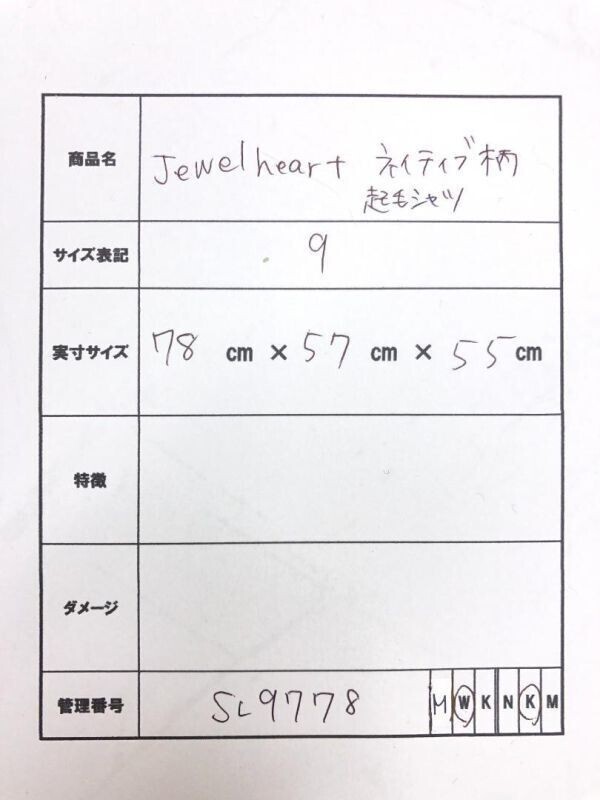 商品名 Jewelheart ネイティブ柄
起毛シャツ
サイズ表記 9
実寸サイズ 78 cm × 57 cm × 55 cm
特徴
ダメージ
管理番号 SL9778 M W K N K M